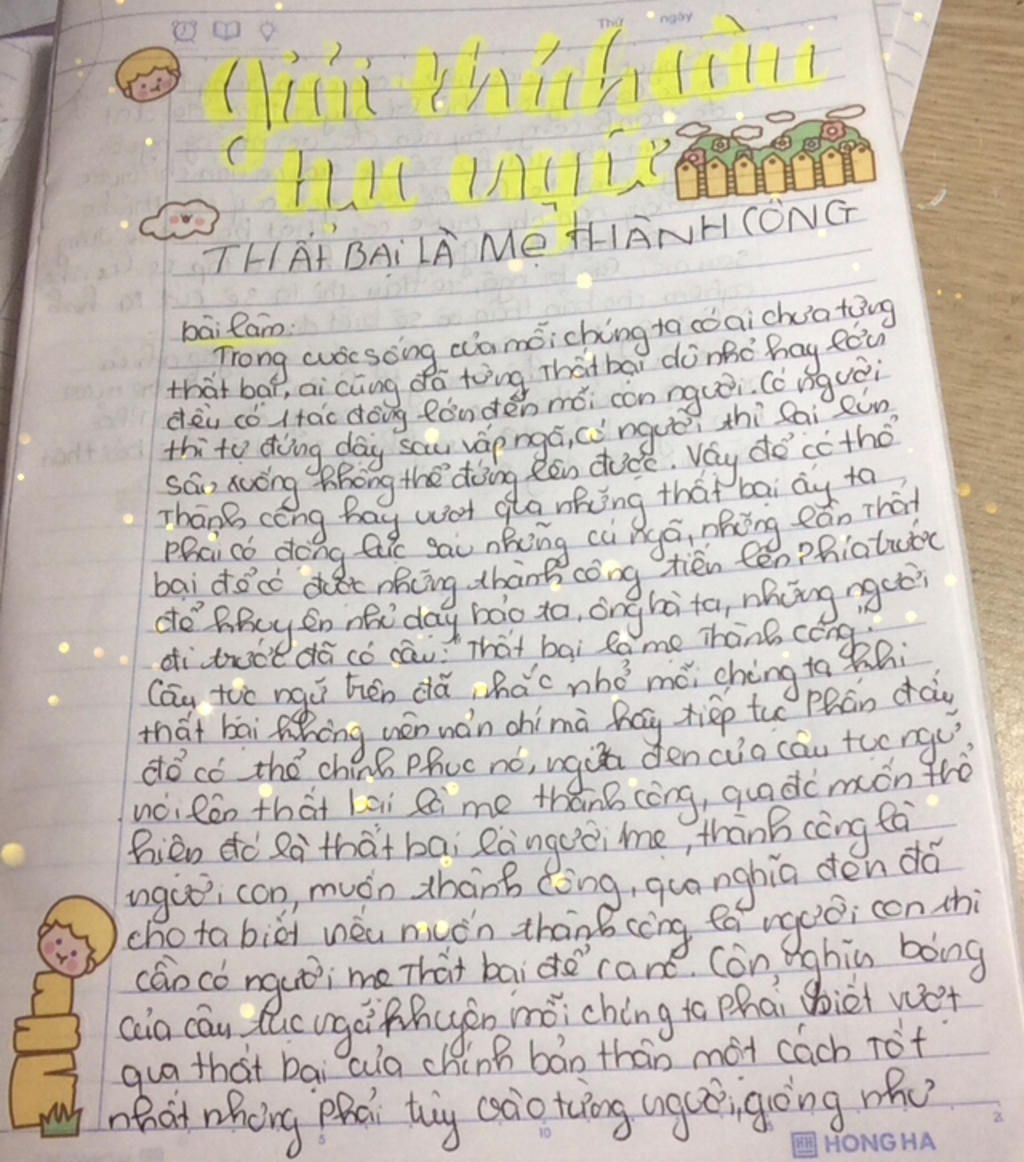 Thứ ngày
Giải thích câu
tục ngữ
THẤT BẠI LÀ MẸ THÀNH CÔNG
bài làm:
Trong cuộc sống của mỗi chúng ta có ai chưa từng
thất bại, ai cũng đã từng thất bại dù nhỏ hay lớn
đều có 1 tác động lớn đến mỗi con người. Có người
thì tự đứng dậy sau vấp ngã, có người thì lại lún
sâu xuống không thể đứng lên được. Vậy để có thể
thành công hay vượt qua những thất bại ấy ta
phải có động lực sau những cú ngã, những lần thất
bại để có được những thành công tiến lên phía trước
để khuyên nhủ dạy bảo ta, ông bà ta, những người
đi trước đã có câu: "Thất bại là mẹ thành công".
Câu tục ngữ trên đã nhắc nhở mỗi chúng ta khi
thất bại không nên nản chí mà hãy tiếp tục phấn đấu
để có thể chinh phục nó, nghĩa đen của câu tục ngữ
nói lên thất bại là mẹ thành công, qua đó muốn thể
hiện đó là thất bại là người mẹ, thành công là
người con, muốn thành công, qua nghĩa đen đã
cho ta biết nếu muốn thành công là người con thì
cần có người mẹ thất bại để ra nó. Còn nghĩa bóng
của câu tục ngữ khuyên mỗi chúng ta phải biết vượt
qua thất bại của chính bản thân một cách tốt
nhất nhưng phải tùy vào từng người, giống như
5 10 2
HH HONG HA